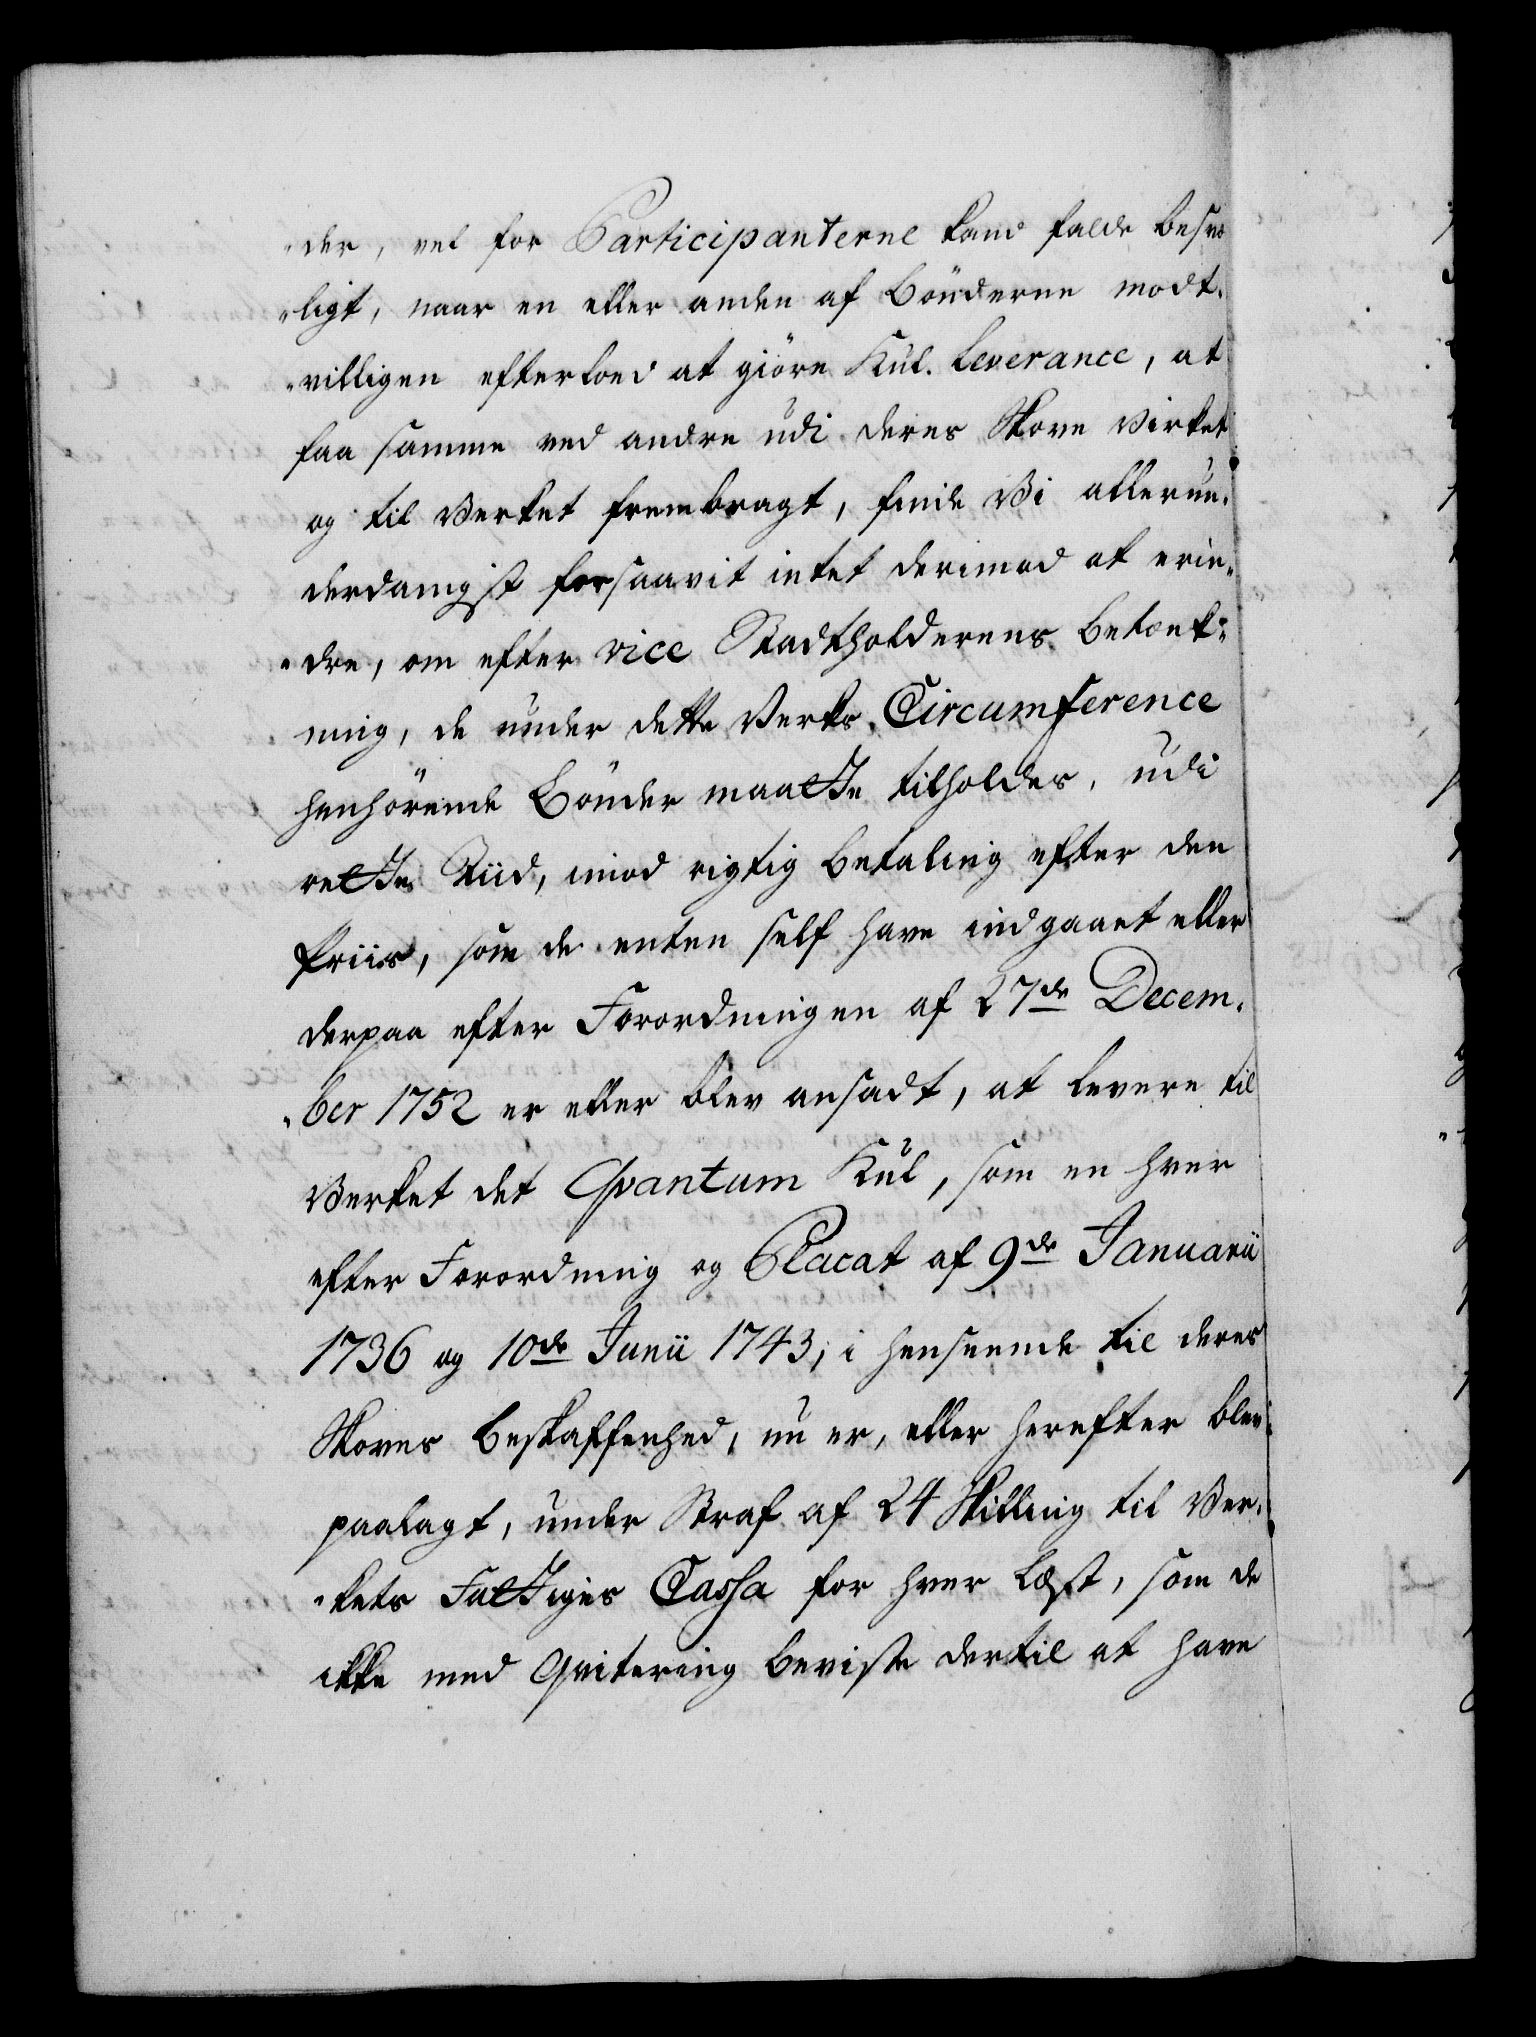 der, vel for Participanterne kand falde besvæ
ligt, naar en eller anden af Bönderne modt-
villigen efterlod at giöre Kul-Leverance, at
faa samme ved andre udi deres Skove virket
og til Verket frembragt, finde Vi allerun-
derdanigst forsaavit intet derimod at erin-
dre, om efter vice Stadtholderens Betænk-
ning, de under dette Verks Circumference
henhörende Bönder maatte tilholdes, udi
rette Tiid, imod rigtig Betaling efter den
Priis, som de enten self have indgaaet eller
derpaa efter Forordningen af 27de Decem-
ber 1752 er eller blev ansadt, at levere til
Verket det Qvantum Kul, som en hver
efter Forordning og Placat af 9de Januarii
1736 og 10de Junii 1743, i henseende til deres
Skoves Beskaffenhed, nu er, eller herefter blev
paalagt, under Straf af 24 Skilling til Ver-
kets Fattiges Cassa for hver Læst, som de
ikke med Qvitering beviste dertil at have